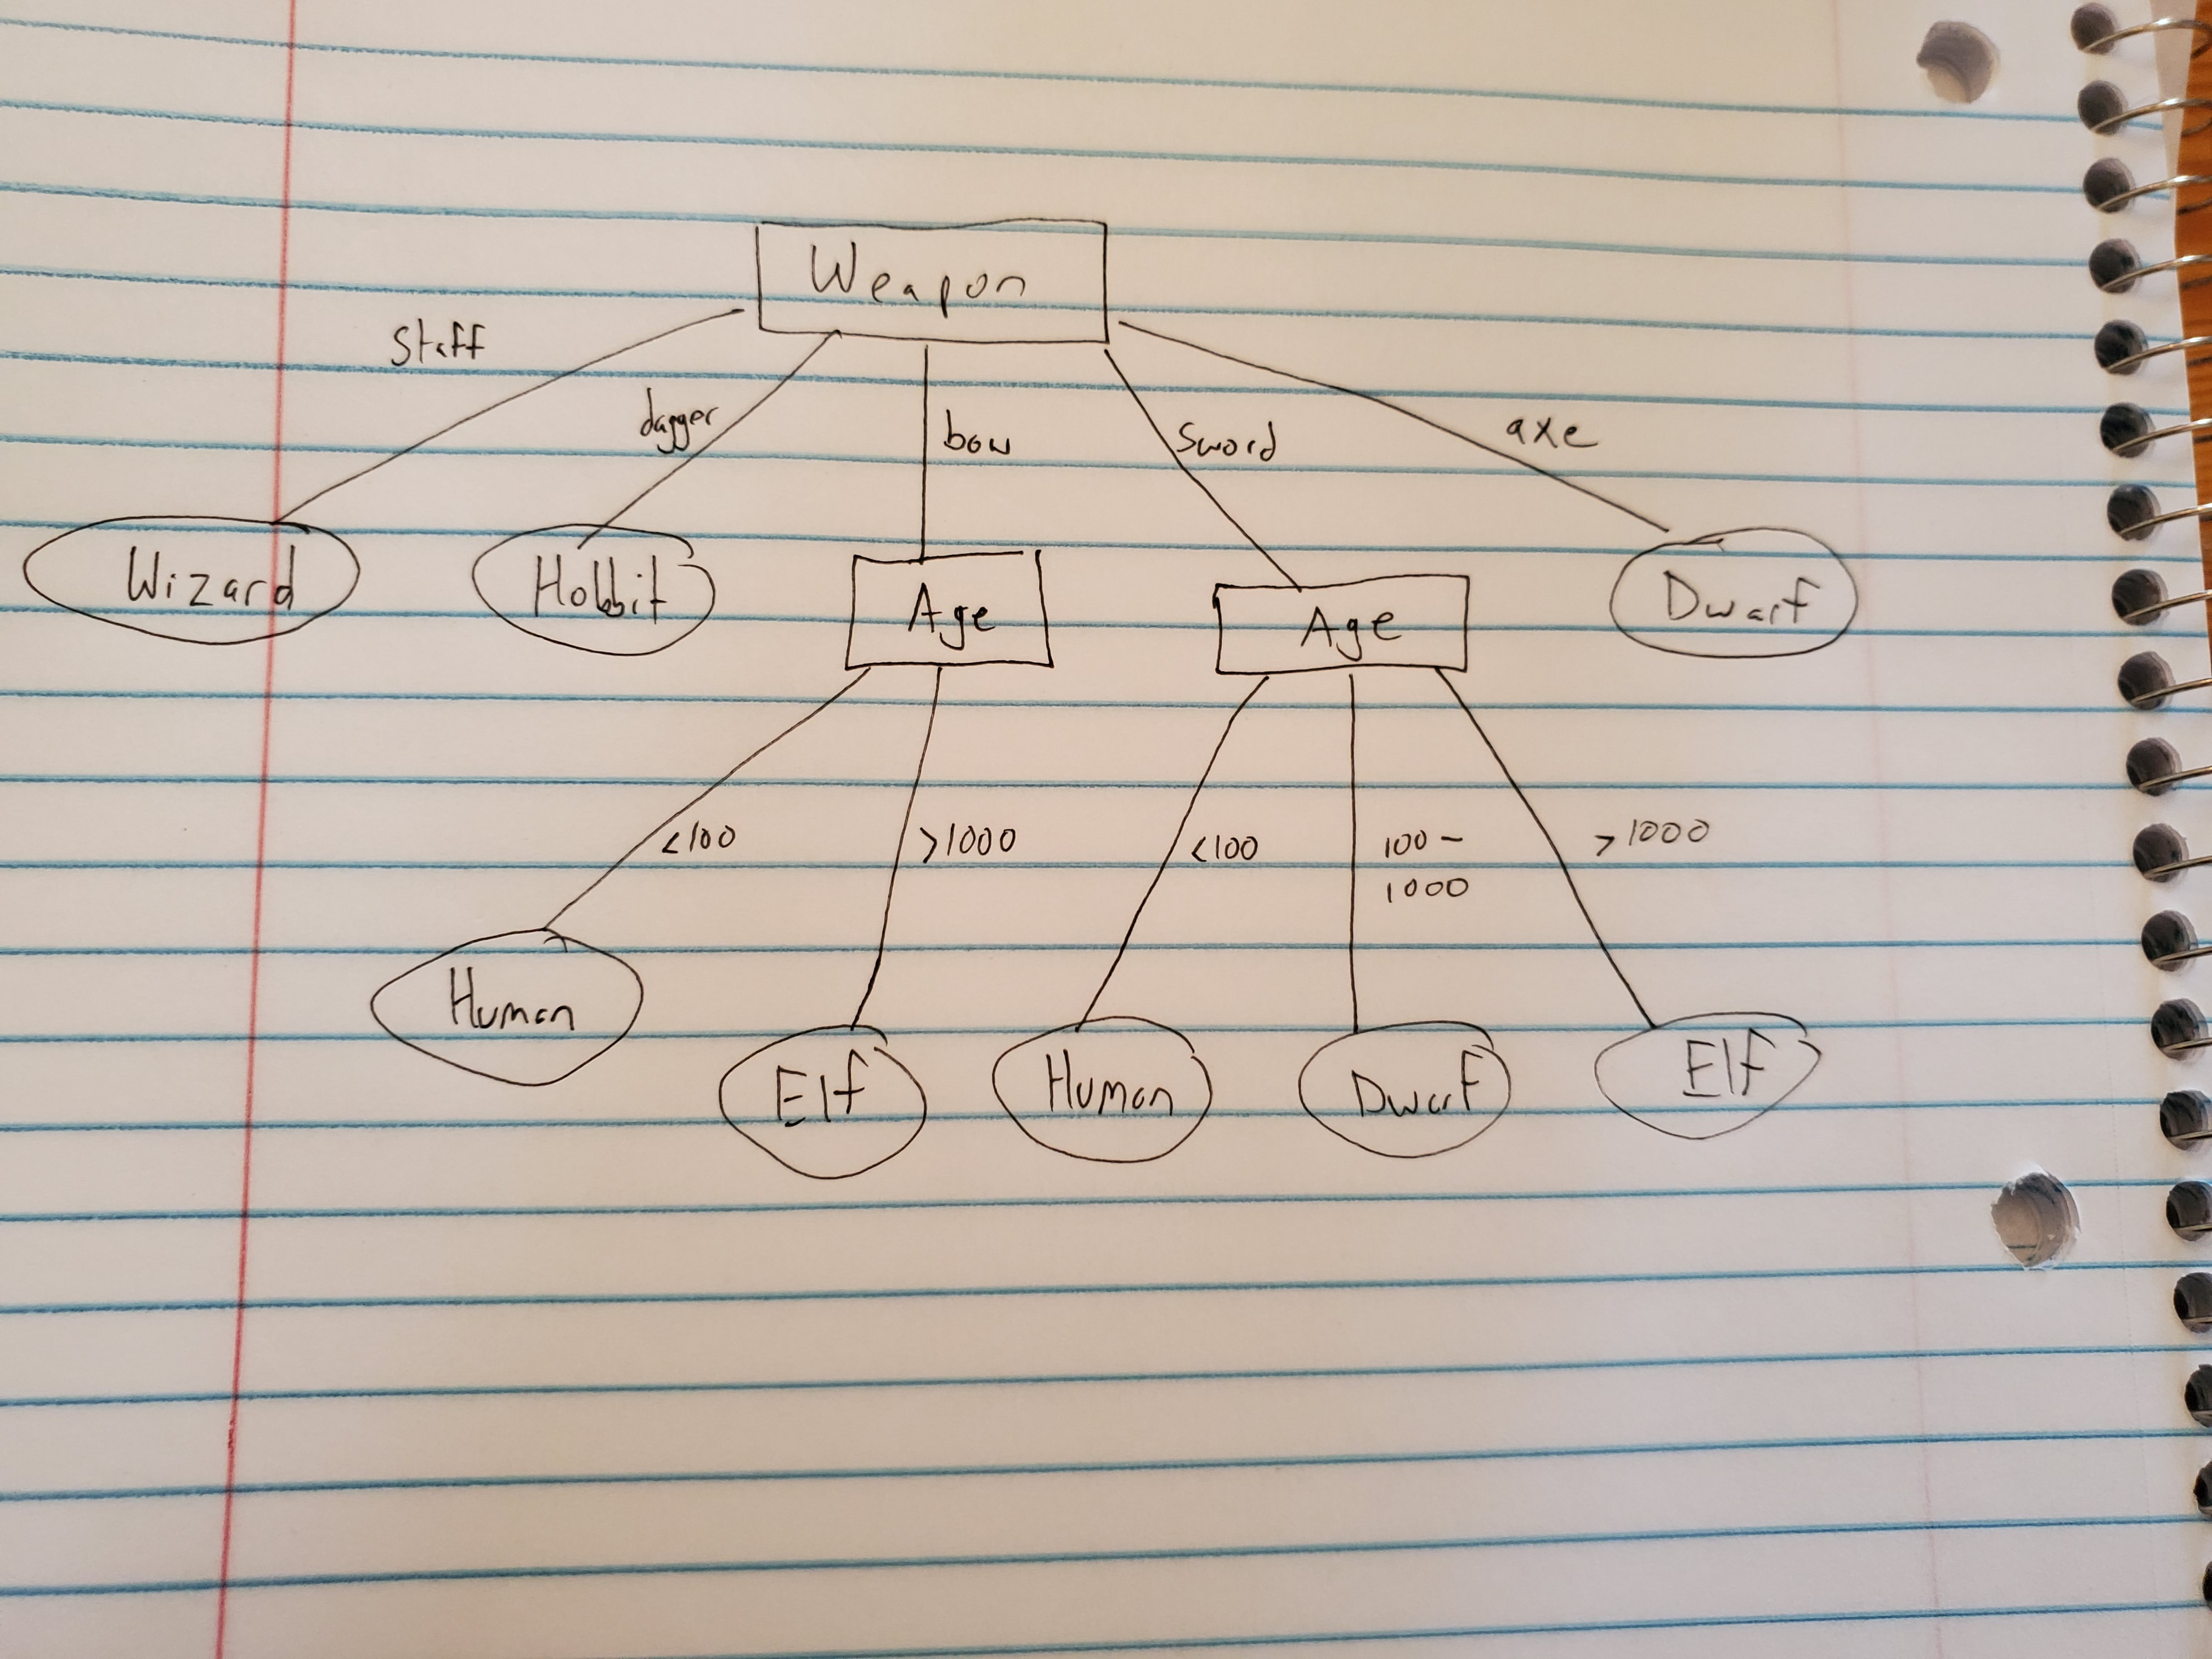 Weapon
Staff
dagger
bow
Sword
axe
Wizard
Hobbit
Age
Age
Dwarf
<100
>1000
<100
100 -
1000
>1000
Human
Elf
Human
Dwarf
Elf